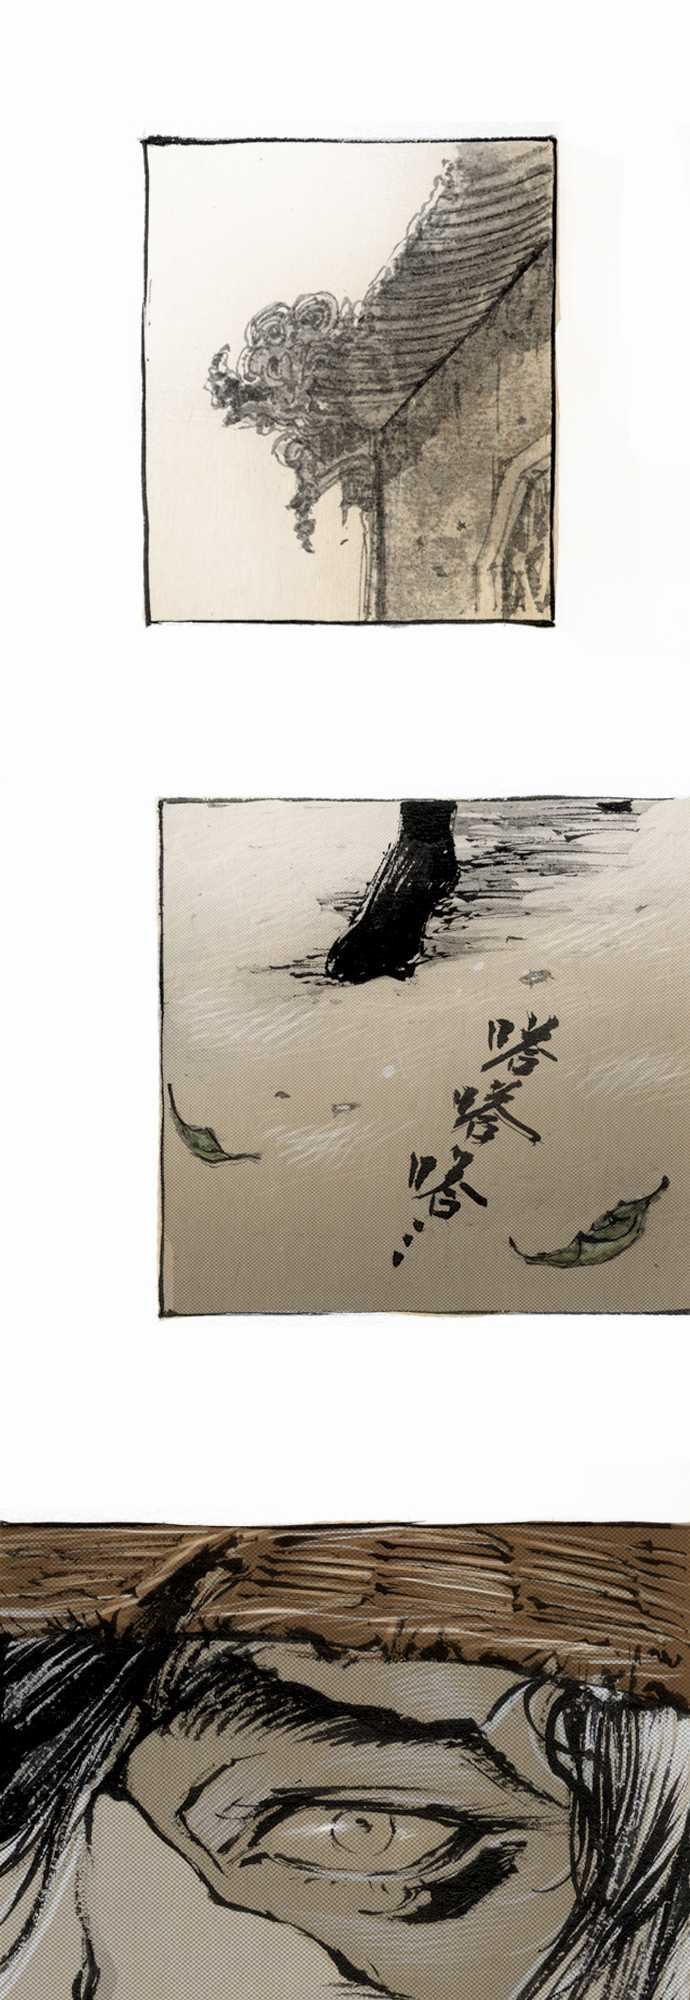 嗒
嗒
嗒…